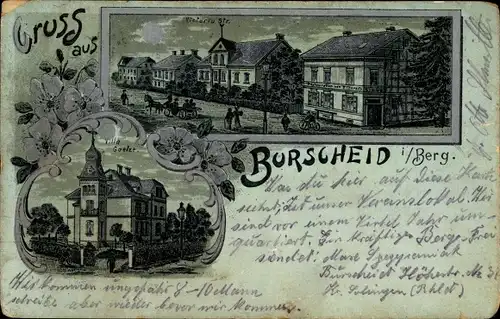 Gruss
aus
Victoria Str.
Villa
BURSCHEID i/Berg.
Was du hier auf diese Karte
siehst, ist unser Vereinslokal. Wir
sind vor einem Viertel Jahr um-
quartiert. Ein kräftiges Berg- Frei
sendet: Max
Burscheid Höhestr. No 3
Kr. Solingen (Rhld)
Wir kommen ungefähr 8-10 Mann
schreibe aber wieder bevor wir kommen.